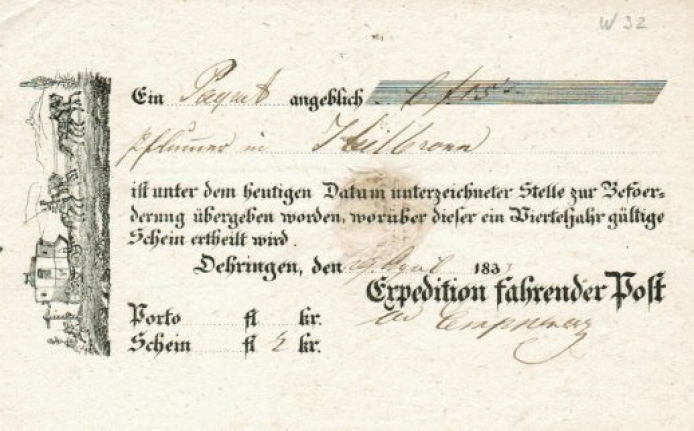 W 32
Ein Paquet angeblich
in Heilbronn
ist unter dem heutigen Datum unterzeichneter Stelle zur Befoer-
derung übergeben worden, worüber dieser ein Vierteljahr gültige
Schein ertheilt wird.
Oehringen, den 183
Expedition fahrender Post
Porto fl kr.
Schein fl 2 kr.